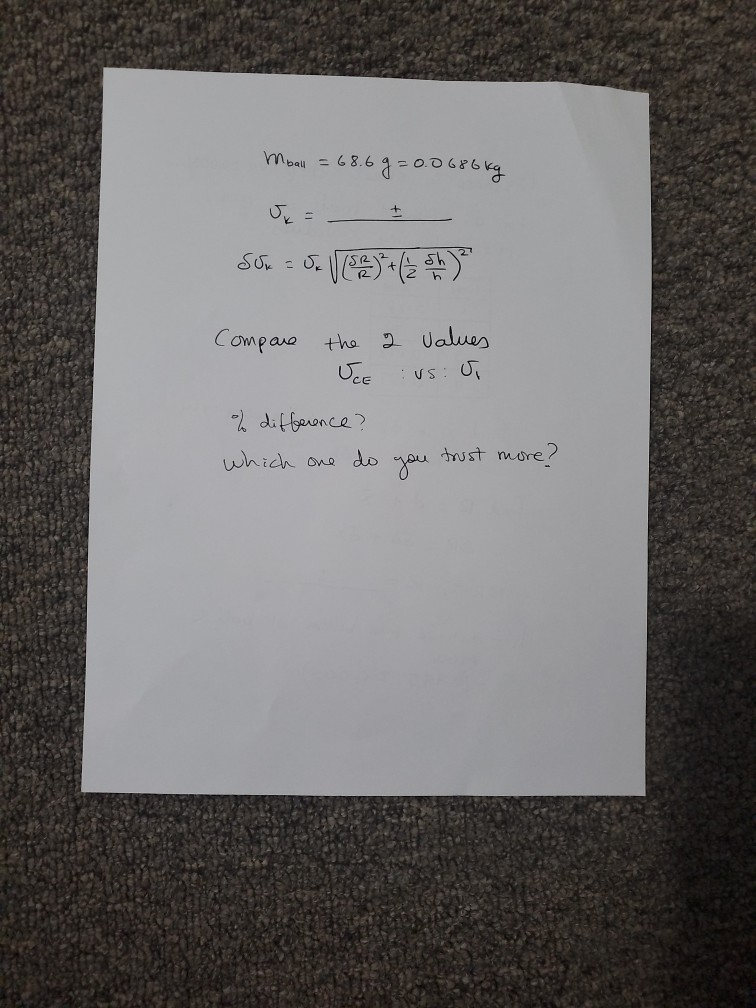 m_ball = 68.6 g = 0.0686 kg
v_k = ___±___
δv_k = v_k √((δR/R)² + (1/2 δh/h)²)
Compare the 2 Values
v_CE : vs : v_1
% difference?
which one do you trust more?